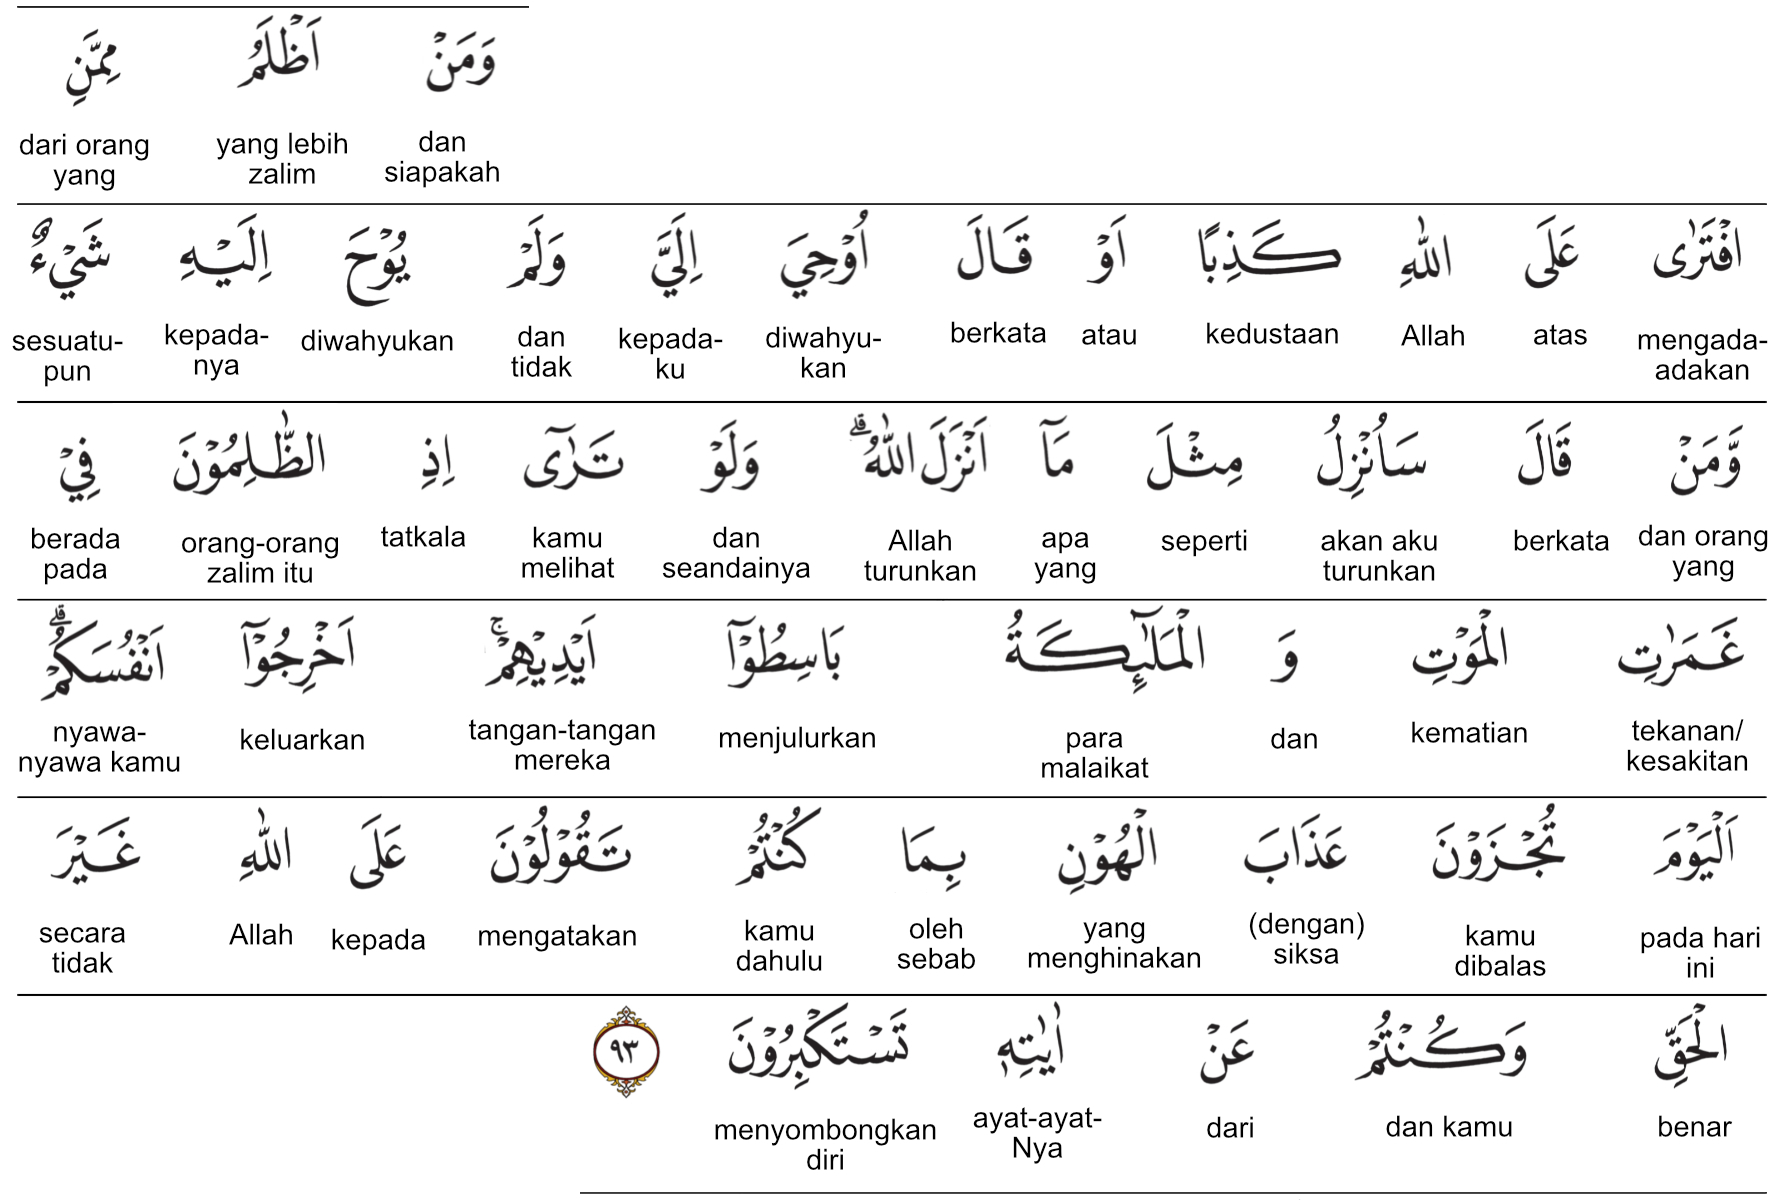 وَمَنْ اَظْلَمُ مِمَّنِ
dan siapakah yang lebih zalim dari orang yang
افْتَرٰى عَلَى اللّٰهِ كَذِبًا اَوْ قَالَ اُوْحِيَ اِلَيَّ وَلَمْ يُوْحَ اِلَيْهِ شَيْءٌ
mengada-adakan atas Allah kedustaan atau berkata diwahyu-kan kepada-ku dan tidak diwahyukan kepada-nya sesuatu-pun
وَّمَنْ قَالَ سَاُنْزِلُ مِثْلَ مَآ اَنْزَلَ اللّٰهُ ۗ وَلَوْ تَرٰٓى اِذِ الظّٰلِمُوْنَ فِيْ
dan orang yang berkata akan aku turunkan seperti apa yang Allah turunkan dan seandainya kamu melihat tatkala orang-orang zalim itu berada pada
غَمَرٰتِ الْمَوْتِ وَ الْمَلٰۤىِٕكَةُ بَاسِطُوْٓا اَيْدِيْهِمْۚ اَخْرِجُوْٓا اَنْفُسَكُمْۗ
tekanan/ kesakitan kematian dan para malaikat menjulurkan tangan-tangan mereka keluarkan nyawa-nyawa kamu
اَلْيَوْمَ تُجْزَوْنَ عَذَابَ الْهُوْنِ بِمَا كُنْتُمْ تَقُوْلُوْنَ عَلَى اللّٰهِ غَيْرَ
pada hari ini kamu dibalas (dengan) siksa yang menghinakan oleh sebab kamu dahulu mengatakan kepada Allah secara tidak
الْحَقِّ وَكُنْتُمْ عَنْ اٰيٰتِهٖ تَسْتَكْبِرُوْنَ ٩٣
benar dan kamu dari ayat-ayat-Nya menyombongkan diri